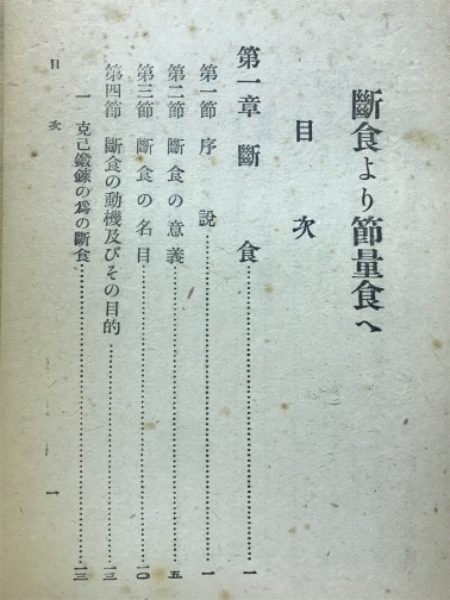 斷食より節量食へ
目次
第一章 斷食……一
第一節 序說……一
第二節 斷食の意義……五
第三節 斷食の名目……一〇
第四節 斷食の動機及びその目的……一三
一 克己鍛鍊の爲の斷食……一三
目次 一